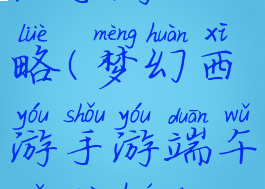 lüè mèng huàn xī
略(梦幻西
yóu shǒu yóu duān wǔ
游手游端午